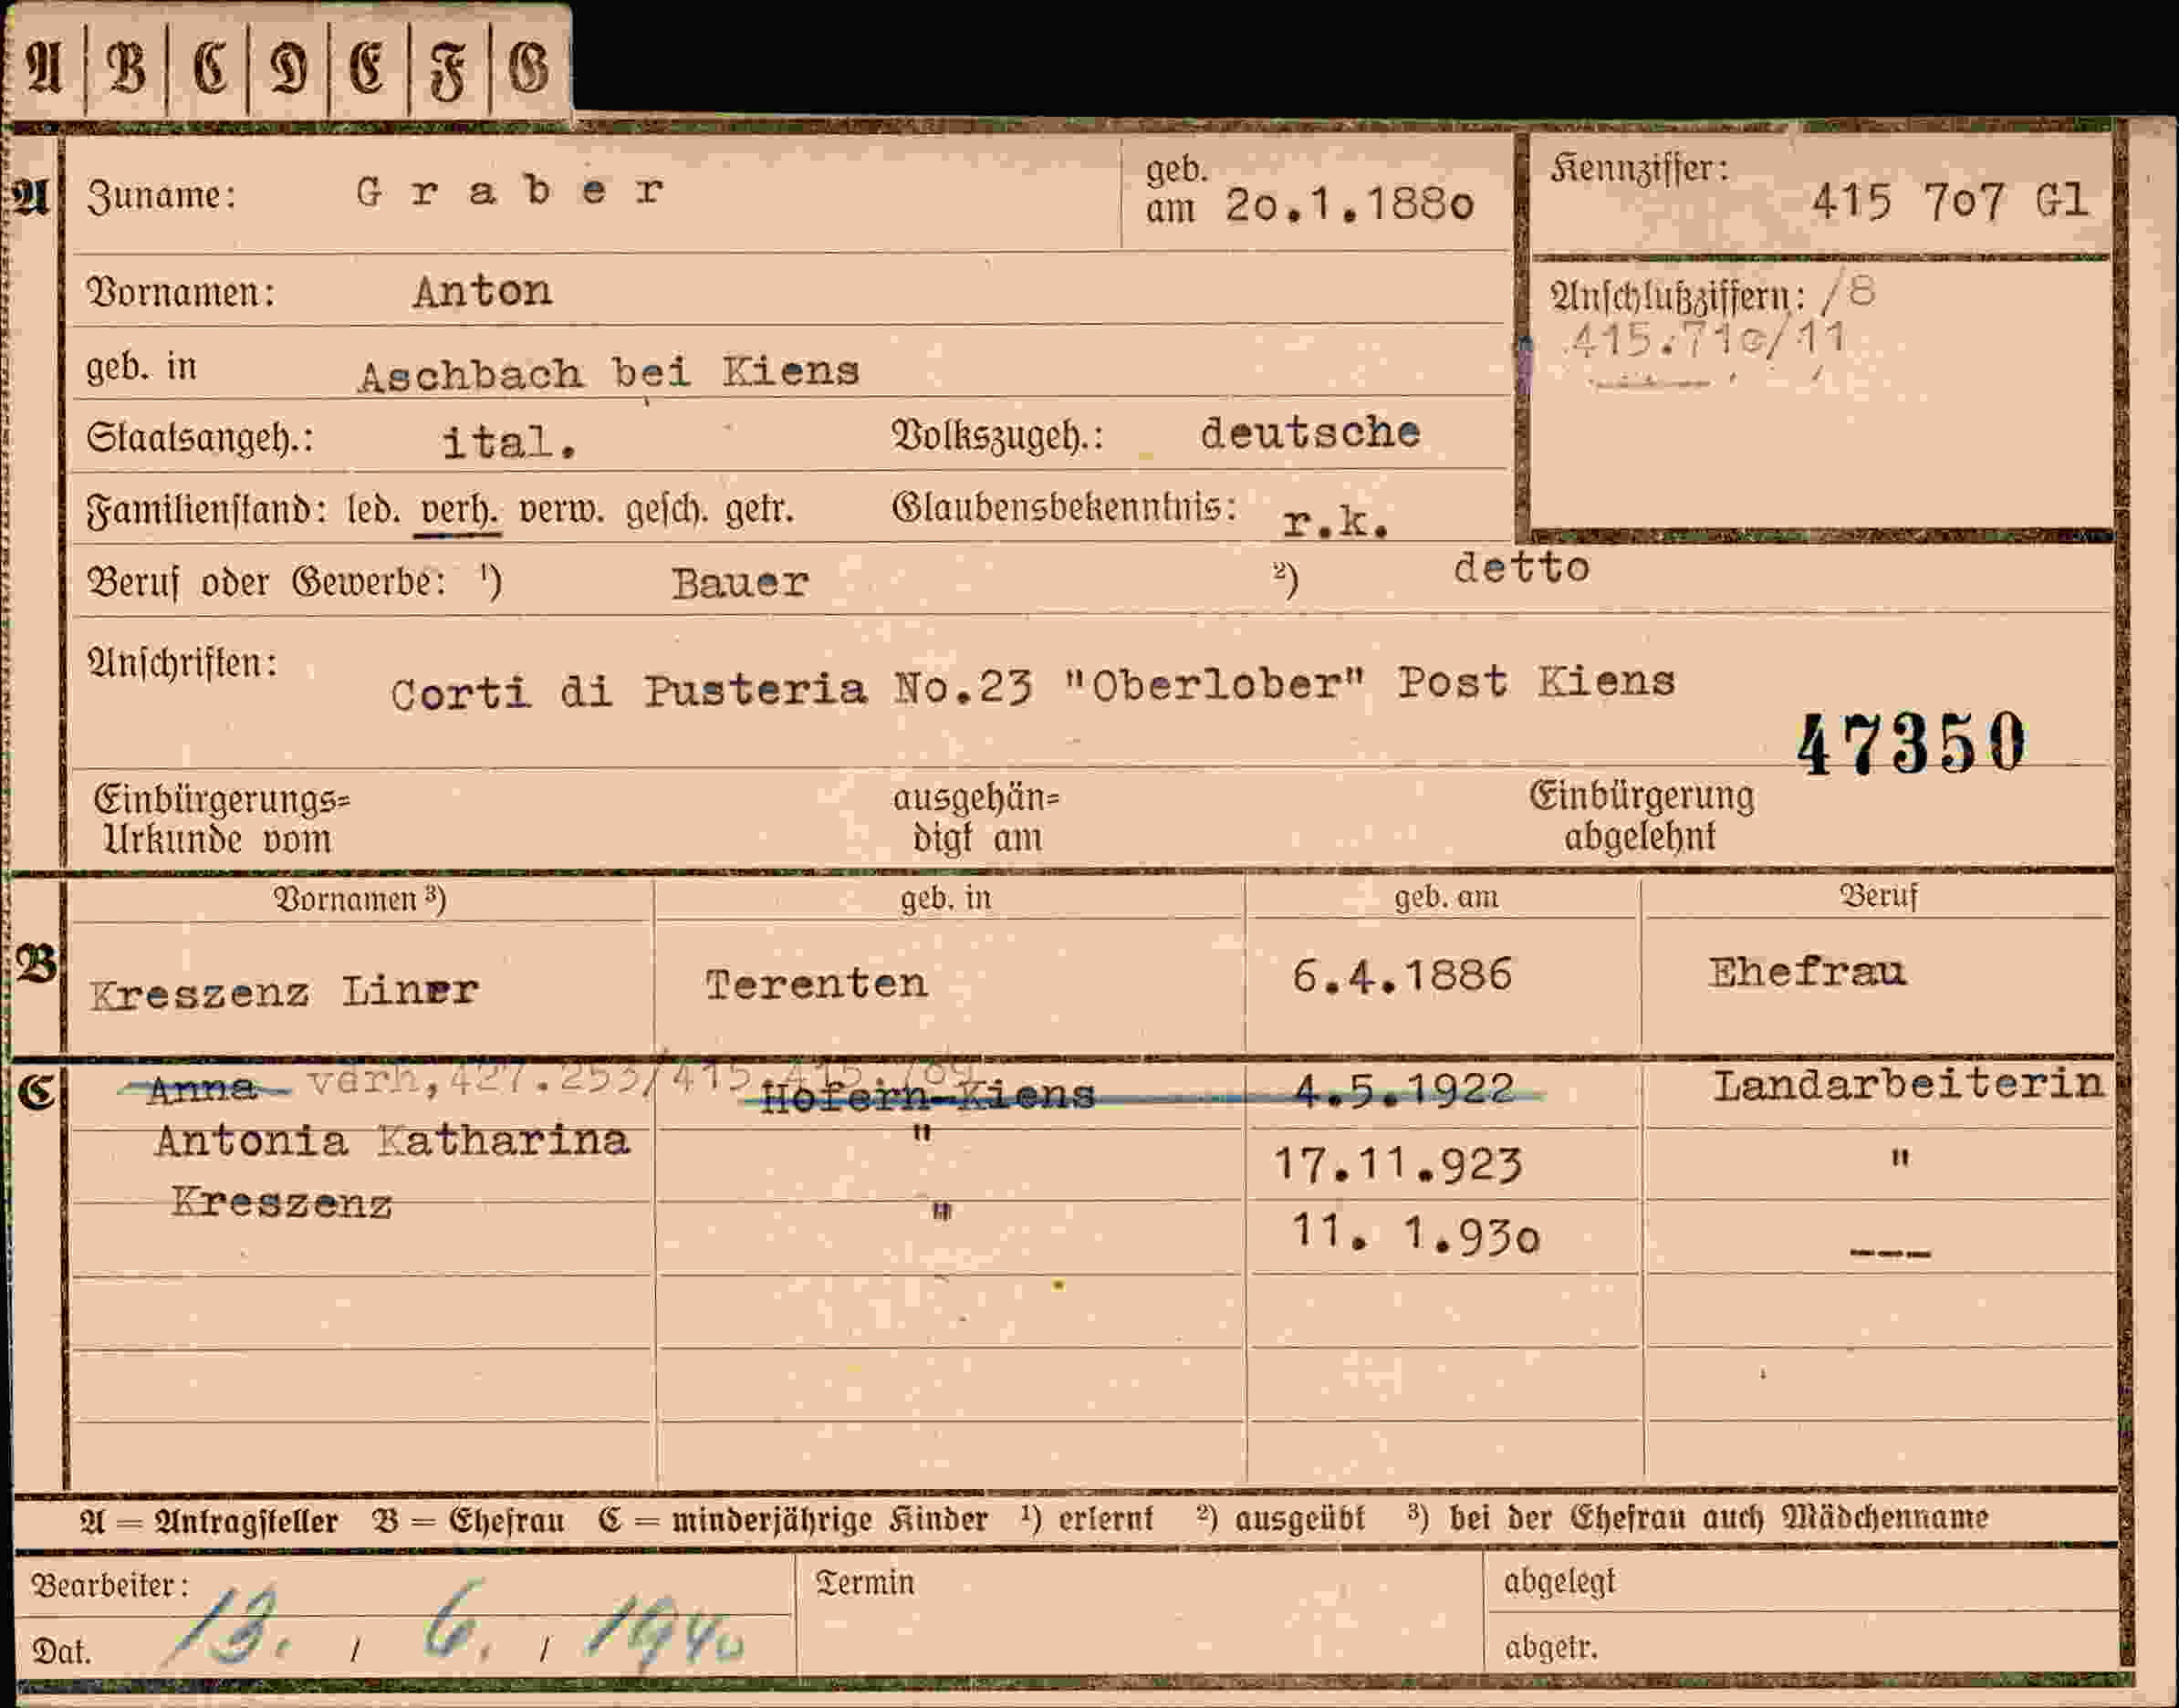 A B C D E F G
A Zuname: Graber geb. am 20.1.1880 Kennziffer: 415 707 Gl
Vornamen: Anton Anschlußziffern: /8
415.710/11
geb. in Aschbach bei Kiens
Staatsangeh.: ital. Volkszugeh.: deutsche
Familienstand: led. verh. verw. gesch. getr. Glaubensbekenntnis: r.k.
Beruf oder Gewerbe: ¹) Bauer ²) detto
Anschriften: Corti di Pusteria No.23 "Oberlober" Post Kiens
47350
Einbürgerungs= ausgehän= Einbürgerung
Urkunde vom digt am abgelehnt
Vornamen ³) geb. in geb. am Beruf
B Kreszenz Liner Terenten 6.4.1886 Ehefrau
C Anna verh, 427.253/415 Hofern-Kiens 4.5.1922 Landarbeiterin
Antonia Katharina " 17.11.923 "
Kreszenz " 11. 1.930 ---
A = Antragsteller B = Ehefrau C = minderjährige Kinder ¹) erlernt ²) ausgeübt ³) bei der Ehefrau auch Mädchenname
Bearbeiter: Termin abgelegt
Dat. 13. / 6. / 1940 abgetr.